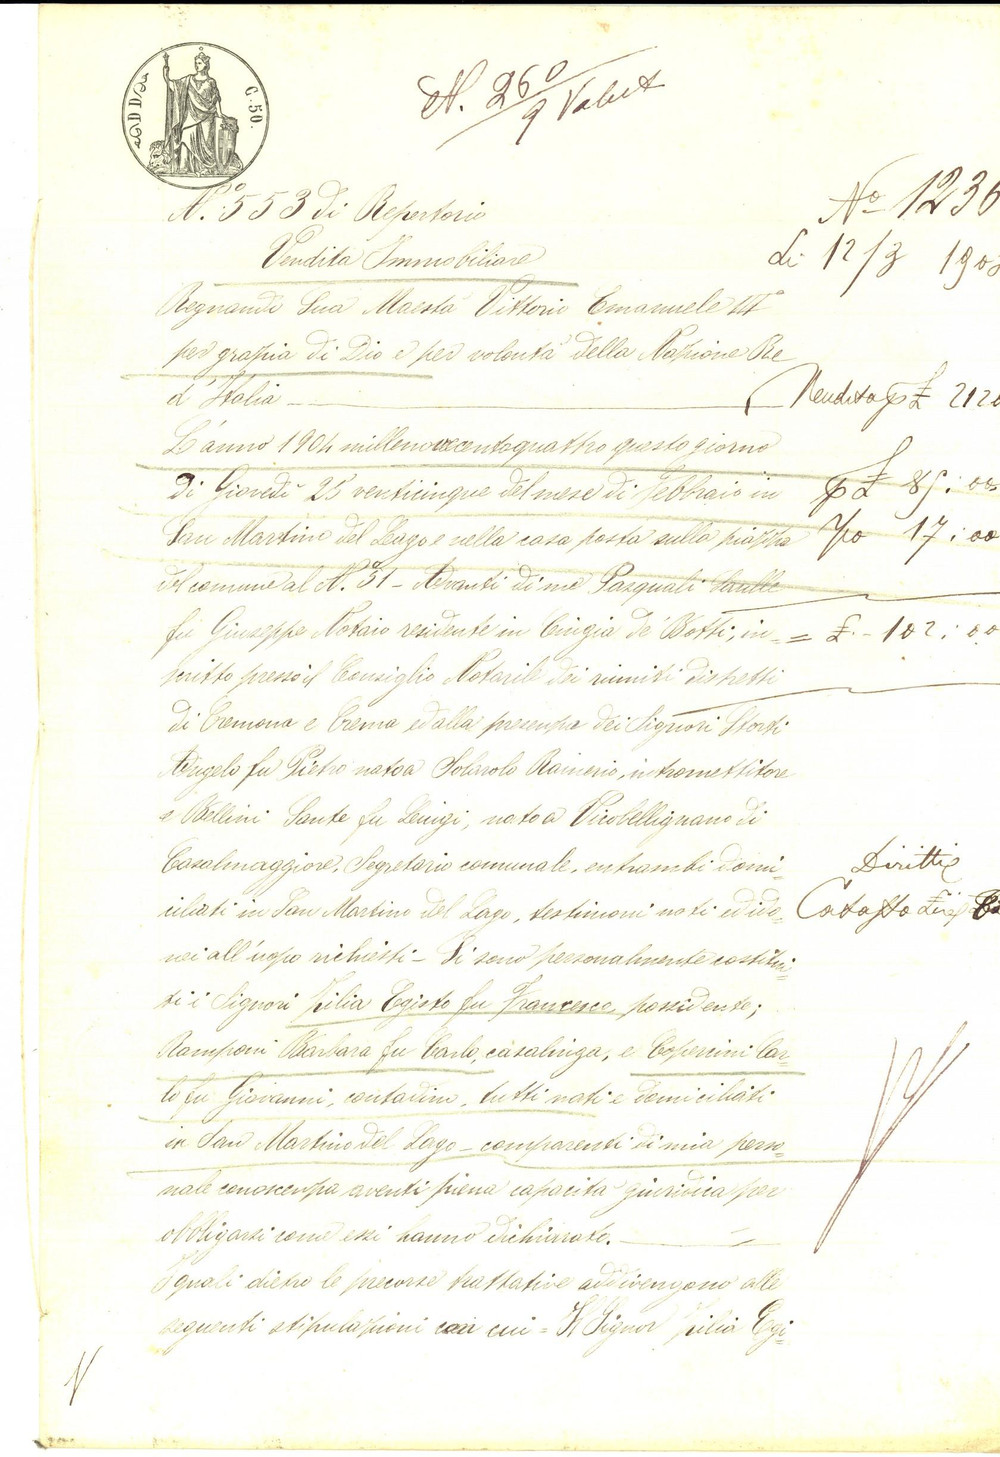 C. 50.
N. 260
9 Valut
N.° 553 di Repertorio
N° 1236
Vendita Immobiliare
Li 12/3 1904
Regnando Sua Maestà Vittorio Emanuele III°
per grazia di Dio e per volontà della Nazione Re
d'Italia
Vendita p £ 2120
L'anno 1904 millenovecentoquattro questo giorno
di Giovedì 25 venticinque del mese di Febbraio in
p £ 85:00
San Martino del Lago e nella casa posta sulla piazza
17:00
del comune al N.° 51 - Avanti di me Pasquali
fu Giuseppe Notaio residente in Cingia de' Botti, in-
= £ - 102:00
scritto presso il Consiglio Notarile dei riuniti distretti
di Cremona e Crema ed alla presenza dei Signori Storti
Angelo fu Pietro nato a Solarolo Rainerio, intromettitore
e Bellini Sante fu Luigi, nato a Vicobellignano di
Casalmaggiore, Segretario comunale, entrambi domi-
Diritti
ciliati in San Martino del Lago, testimoni noti ed ido-
Catasto Lire
nei all'uopo richiesti - Si sono personalmente costitui-
ti i Signori Pilia Egisto fu Francesco, possidente;
Ramponi Barbara fu Carlo, casalinga, e Coperzini Car-
lo fu Giovanni, contadino, tutti nati e domiciliati
in San Martino del Lago - comparenti di mia perso-
nale conoscenza aventi piena capacità giuridica per
obbligarsi come essi hanno dichiarato.
I quali dietro le precorse trattative addivengono alle
seguenti stipulazioni con cui = Il Signor Pilia Egi-